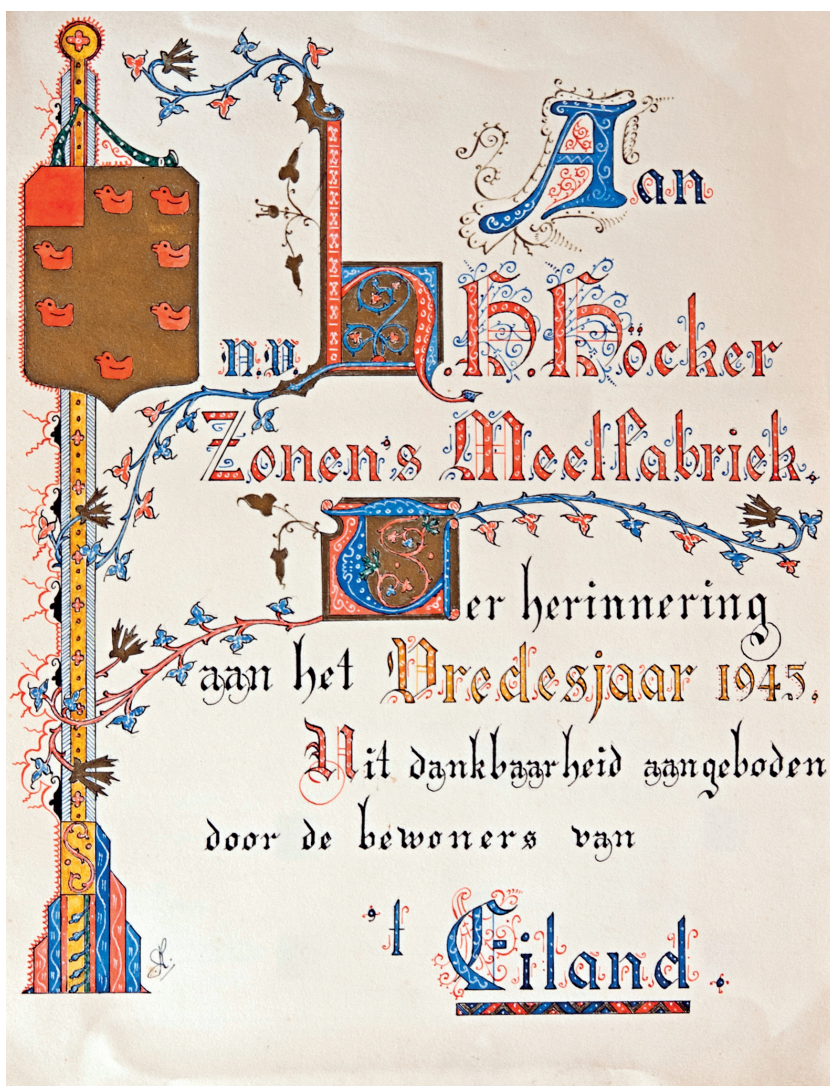 Aan
n.v. H.H.Höcker
Zonen's Meelfabriek.
Ter herinnering
aan het Vredesjaar 1945.
Uit dankbaarheid aangeboden
door de bewoners van
't Eiland.